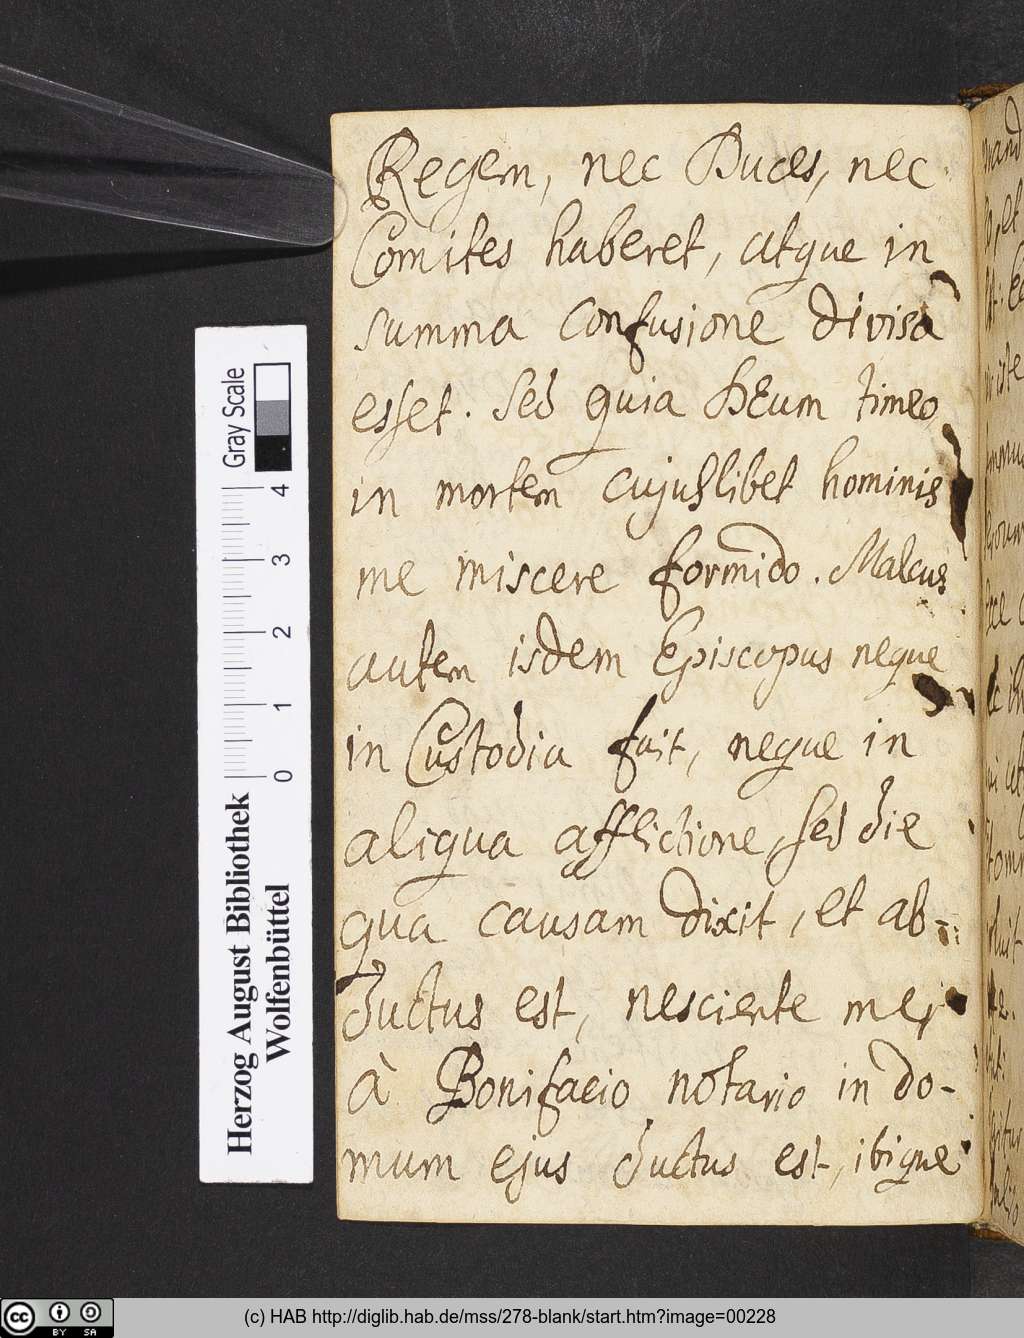 Regem, nec Duces, nec
Comites haberet, atque in
summa confusione divisa
esset. Sed quia DEum timeo,
in mortem cujuslibet hominis
me miscere formido. Malcus
autem isdem Episcopus neque
in Custodia fuit, neque in
aliqua afflictione, sed die
qua causam dixit, et ab-
ductus est, nesciente me,
à Bonifacio notario in do-
mum ejus ductus est, ibique
Gray Scale
4
3
2
1
0
Herzog August Bibliothek
Wolfenbüttel
cc BY SA
(c) HAB http://diglib.hab.de/mss/278-blank/start.htm?image=00228